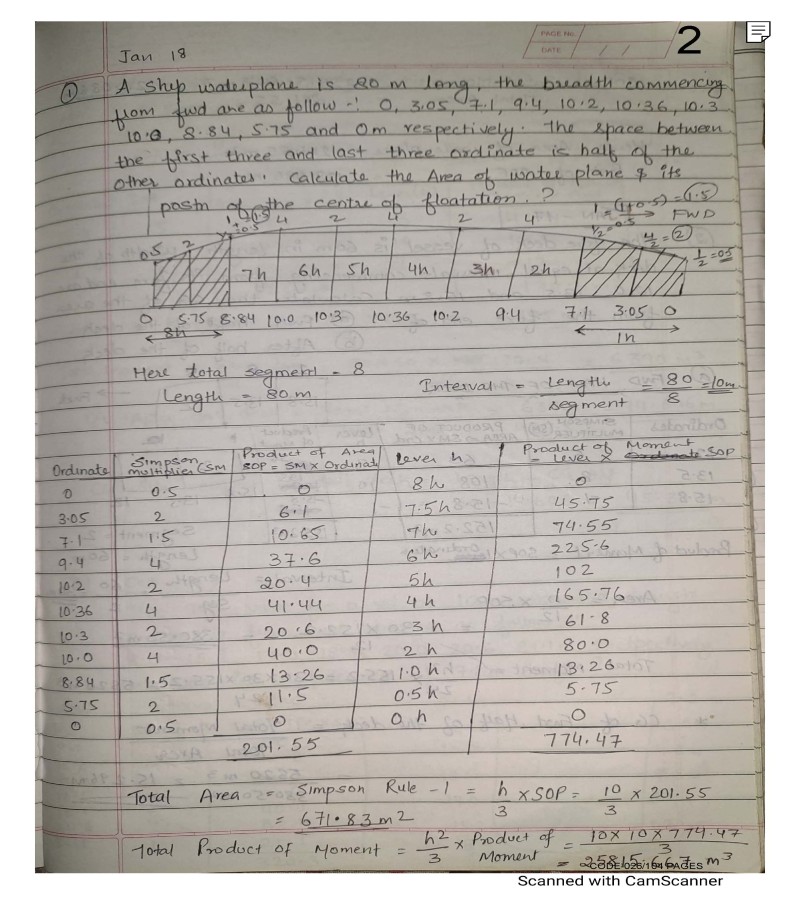 PAGE NO.
DATE / /
2
Jan 18
① A Ship waterplane is 80 m long, the breadth commencing
from fwd are as follow -: 0, 3.05, 7.1, 9.4, 10.2, 10.36, 10.3
10.0, 8.84, 5.75 and 0m respectively. The space between
the first three and last three ordinate is half of the
other ordinates. Calculate the Area of water plane & its
postn of the centre of floatation.?
1 + 0.5 = 1.5 4 2 4 2 4 1 = (1+0.5) = 1.5
1/2 = 0.5 FWD
0.5 2 1/2 = 0.5 4/2 = 2 1/2 = 0.5
7h 6h 5h 4h 3h 2h
0 5.75 8.84 10.0 10.3 10.36 10.2 9.4 7.1 3.05 0
8h 1h
Here total segment = 8
Length = 80 m
Interval = Length / segment = 80 / 8 = 10m
Ordinate Simpson multiplier (SM Product of Area SOP = SM X Ordinate Lever h Product of Moment = Lever X SOP
0 0.5 0 8h 0
3.05 2 6.1 7.5h 45.75
7.1 1.5 10.65 7h 74.55
9.4 4 37.6 6h 225.6
10.2 2 20.4 5h 102
10.36 4 41.44 4h 165.76
10.3 2 20.6 3h 61.8
10.0 4 40.0 2h 80.0
8.84 1.5 13.26 1.0h 13.26
5.75 2 11.5 0.5h 5.75
0 0.5 0 0h 0
201.55 774.47
Total Area = Simpson Rule -1 = h/3 X SOP = 10/3 x 201.55
= 671.83 m2
Total Product of Moment = h2/3 x Product of Moment = 10x10x774.47/3
= 25815.667 m3
CODE 026/154 PAGES
Scanned with CamScanner